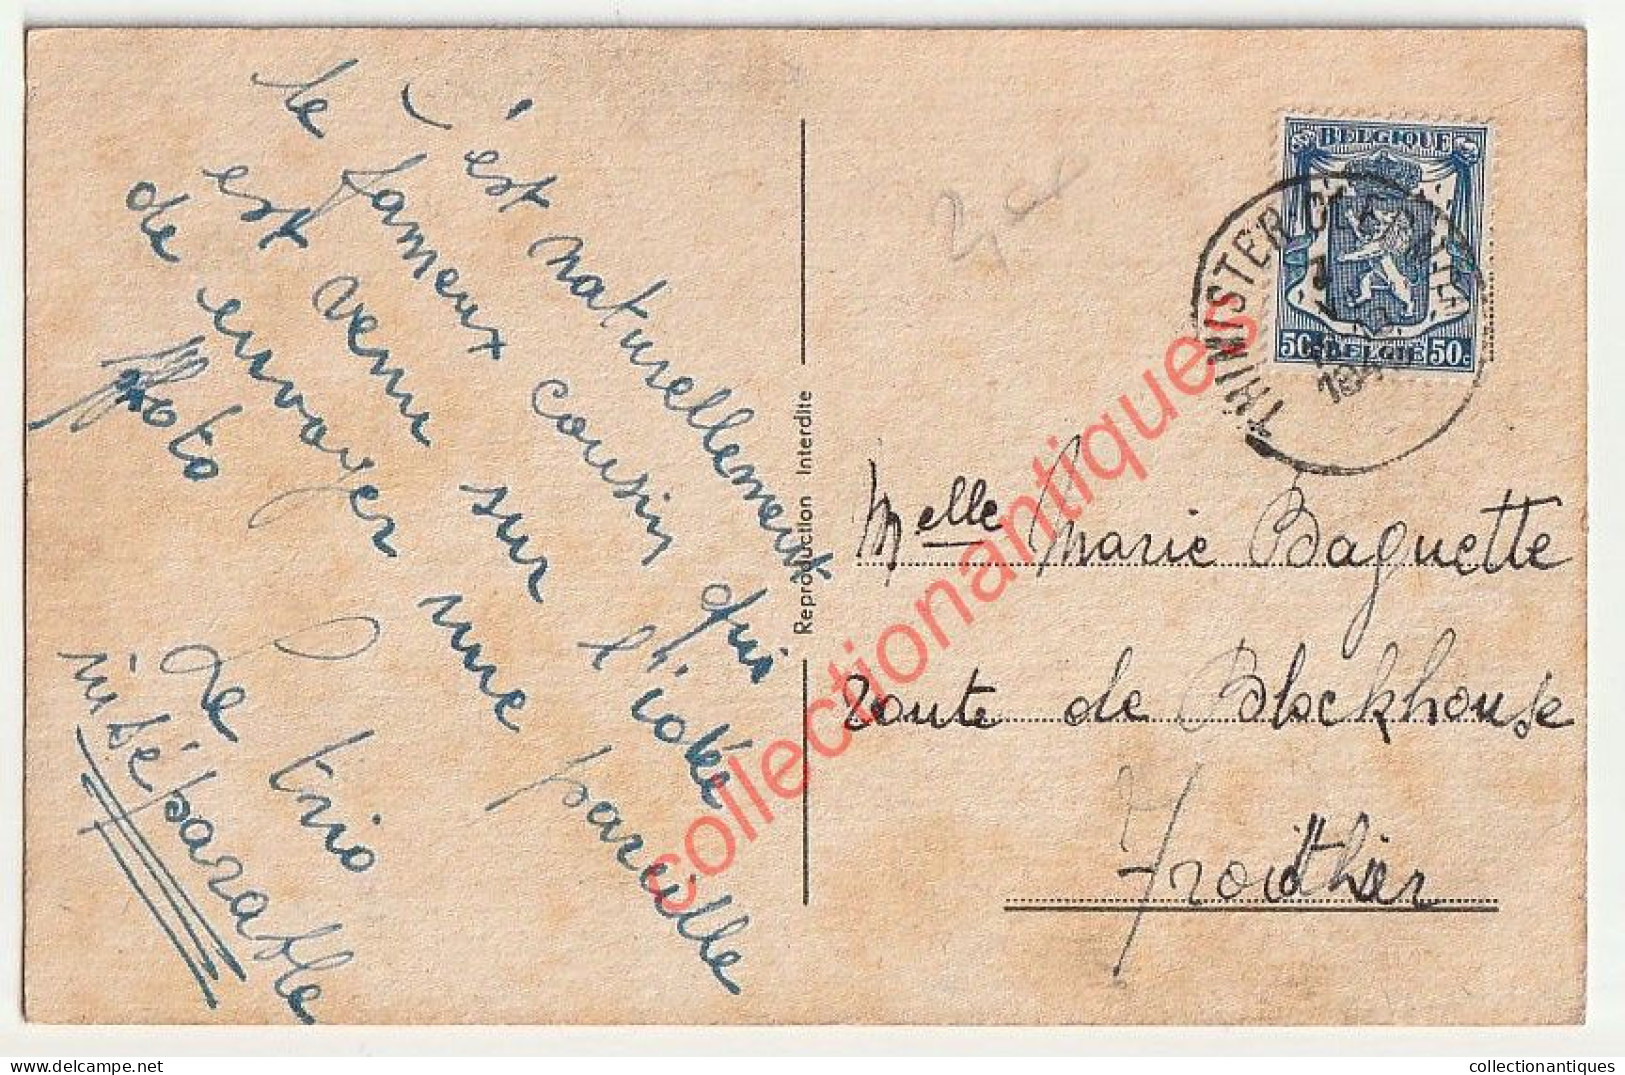 c'est naturellement
le fameux cousin qui
est venu sur l'idée
de envoyer une pareille
photo
Le trio
inséparable
Reproduction Interdite
BELGIQUE
50c BELGIE 50c
THIMISTER
Melle Marie Baguette
route de Blockhouse
Froidthier
collectionantiques
collectionantiques